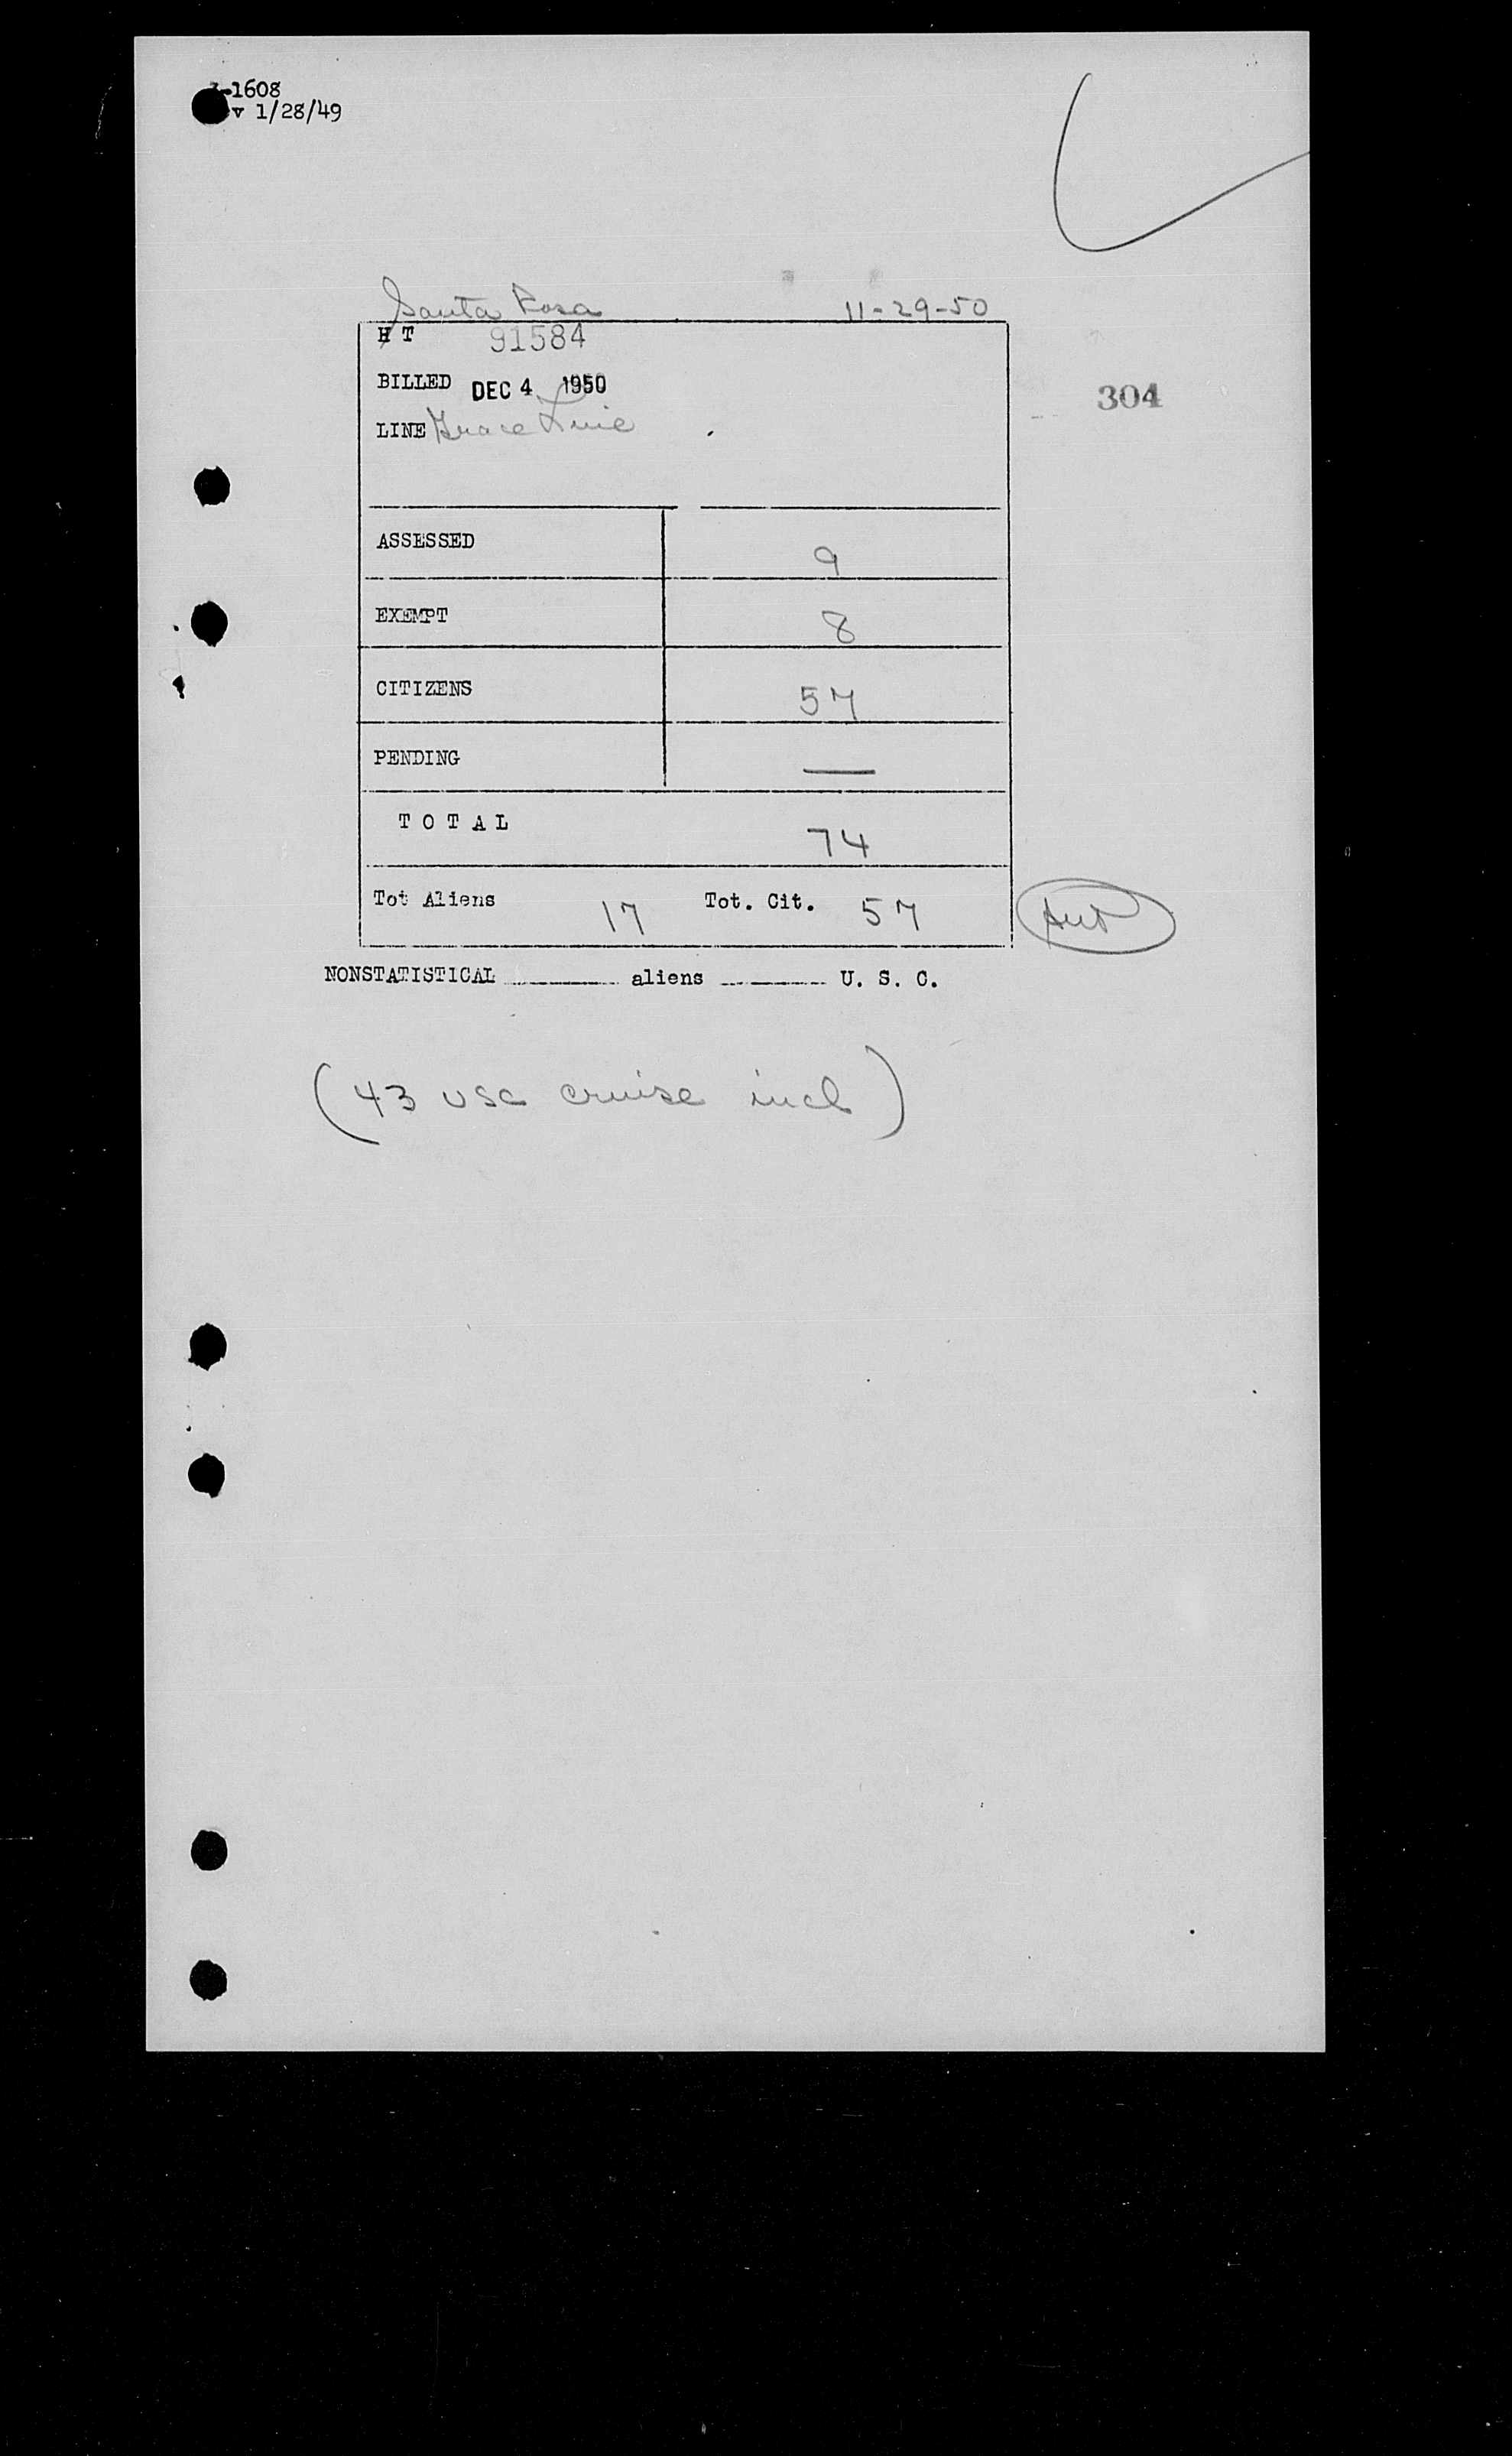 -1608
v 1/28/49
Santa Rosa 11-29-50
H T 91584
BILLED DEC 4 1950
304
LINE Grace Line
ASSESSED 9
EXEMPT 8
CITIZENS 57
PENDING —
T O T A L 74
Tot Aliens 17 Tot. Cit. 57
NONSTATISTICAL ______ aliens ______ U. S. C.
(43 USC cruise incl)